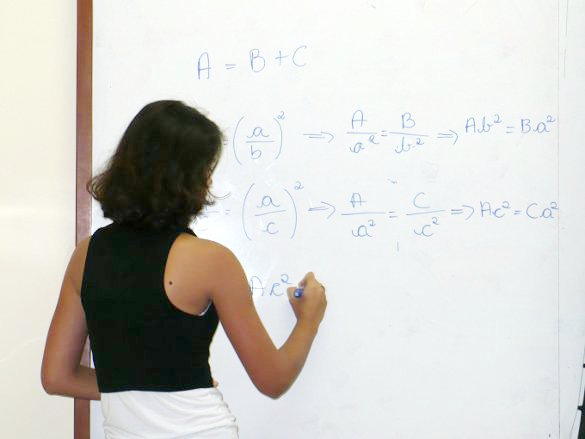 A = B + C
= (a/b)² ⇒ A/a² = B/b² ⇒ Ab² = Ba²
= (a/c)² ⇒ A/a² = C/c² ⇒ Ac² = Ca²
Ac²